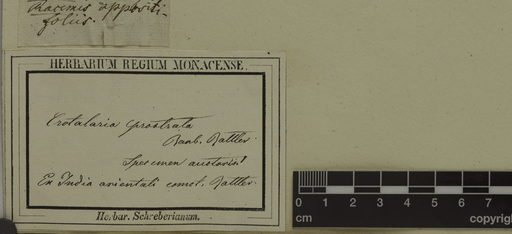 Racemis oppositi-
foliis.
HERBARIUM REGIUM MONACENSE.
Crotalaria prostrata
Rottler.
Specimen auctoris!
Ex India orientali comt. Rottler.
Herbar. Schreberianum.
0 1 2 3 4 5 6 7
cm
copyrigh